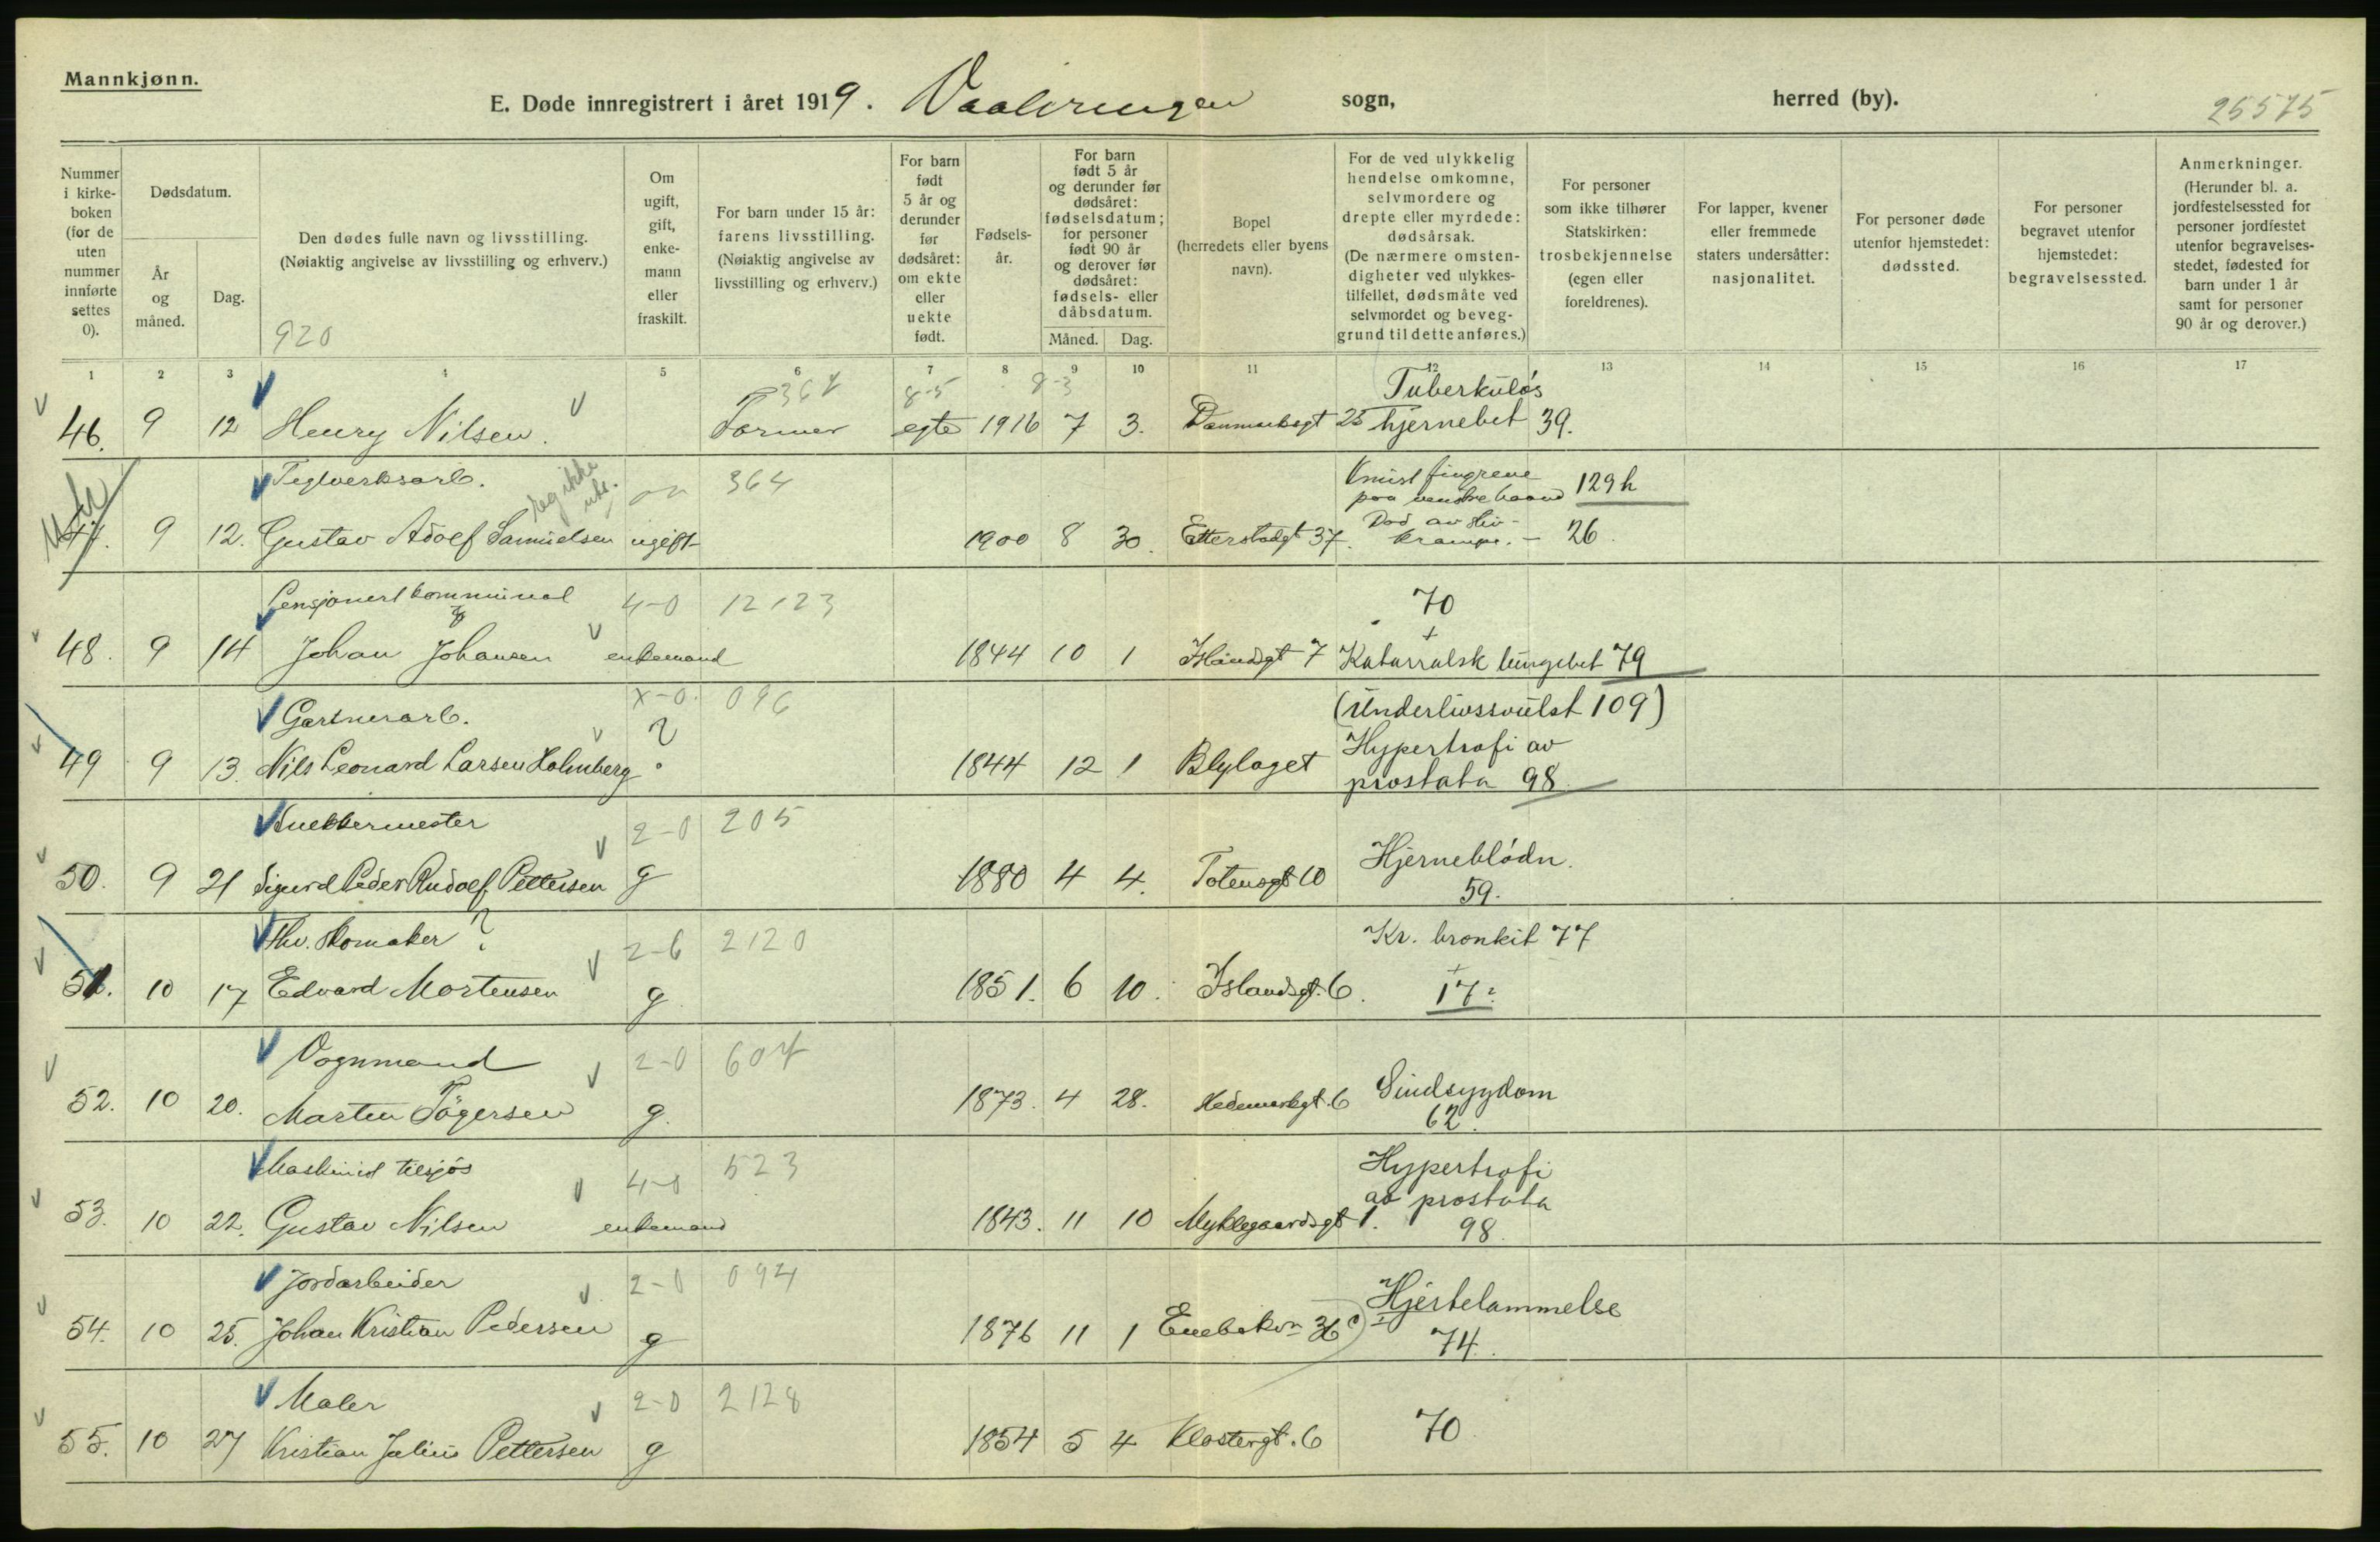 Mannkjønn.
E. Døde innregistrert i året 1919. Vaaleringen sogn, herred (by). 25575
Nummer i kirkeboken (for de uten nummer innførte settes 0).
Dødsdatum.
År og måned.
Dag.
Den dødes fulle navn og livsstilling.
(Nøiaktig angivelse av livsstilling og erhverv.)
920
Om ugift, gift, enkemann eller fraskilt.
For barn under 15 år: farens livsstilling. (Nøiaktig angivelse av livsstilling og erhverv.)
For barn født 5 år og derunder før dødsåret: om ekte eller uekte født.
Fødselsår.
For barn født 5 år og derunder før dødsåret: fødselsdatum; for personer født 90 år og derover før dødsåret: fødsels- eller dåbsdatum.
Måned. Dag.
Bopel (herredets eller byens navn).
For de ved ulykkelig hendelse omkomne, selvmordere og drepte eller myrdede: dødsårsak. (De nærmere omstendigheter ved ulykkestilfellet, dødsmåte ved selvmordet og beveggrund til dette anføres.)
For personer som ikke tilhører Statskirken: trosbekjennelse (egen eller foreldrenes).
For lapper, kvener eller fremmede staters undersåtter: nasjonalitet.
For personer døde utenfor hjemstedet: dødssted.
For personer begravet utenfor hjemstedet: begravelsessted.
Anmerkninger. (Herunder bl. a. jordfestelsessted for personer jordfestet utenfor begravelsesstedet, fødested for barn under 1 år samt for personer 90 år og derover.)
1 2 3 4 5 6 7 8 9 10 11 12 13 14 15 16 17
367 8-5 8-3 Tuberkuløs
46. 9 12 Henry Nilsen. Former egte 1916 7 3. Danmarksgt 25 hjernebet 39.
Teglverksarb. reg ikke 364 Knust fingrene
paa venstre haand 129h
47. 9 12. Gustav Adolf Samuelsen ugift 1900 8 30. Etterstadgt 37. Død av stiv-
krampe. - 26.
Pensjonert kommunal 4-0 12123 70
48. 9 14 Johan Johansen enkemand 1844 10 1 Islandsgt 7 Katarralsk lungebet 79
Gartnerarb. x-0. 096 (Underlivssvulst 109)
49 9 13. Nils Leonard Larsen Holmberg ? 1844 12 1 Blylaget Hypertrofi av
prostata 98
Snekkermester 2-0 205 Hjerneblødn.
50. 9 21 Sigurd Peder Rudolf Pettersen g 1880 4 4. Totensgt 10 59.
Fhv. Skomaker ? 2-6 2120 Kr. bronkit 77
51. 10 17 Edvard Mortensen g 1851. 6 10. Islandsgt. 6. 17?
Vognmand 2-0 604 Sindsygdom
52. 10 20. Marten Tögersen g. 1873. 4 28. Hedemarksgt. 6 62.
Maskinist tilsjøs 4-0 523 Hypertrofi
av prostata
53. 10 22. Gustav Nilsen enkemand 1843. 11 10 Myklegaardsgt 1. 98.
Jordarbeider 2-0 094 Hjertelammelse
54. 10 25. Johan Kristian Pedersen g 1876 11 1 Enebakvn 36c 74.
Maler 2-0 2128
55. 10 27 Kristian Julius Pettersen g 1854 5 4 Klostergt. 6 70